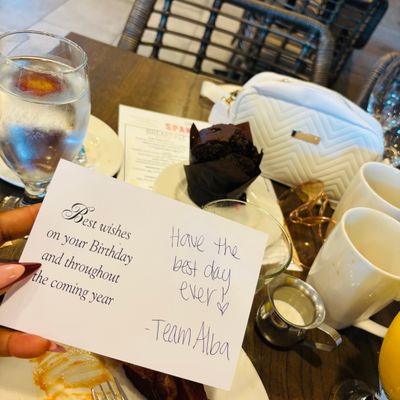 Best wishes
on your Birthday
and throughout
the coming year
Have the
best day
ever!
-Team Alba
SPA